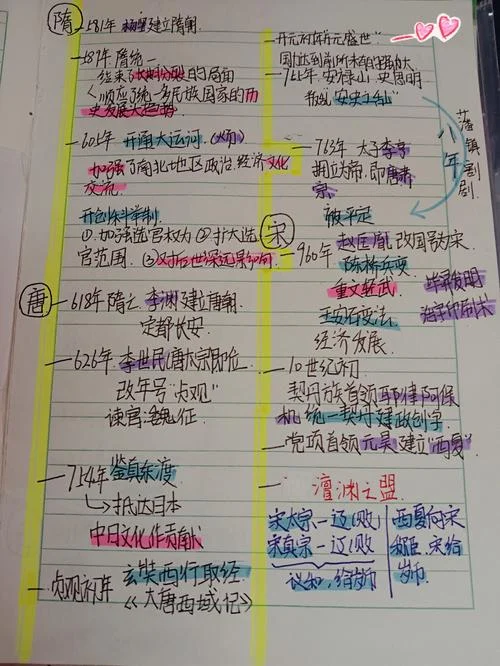 隋
581年 杨坚建立隋朝
589年 隋统一
结束了大时分裂的局面
顺应了统一多民族国家的历
史发展大趋势
605年 开通大运河
加强了南北地区政治、经济文化
交流
开创科举制
①加强选官权力 ②扩大选
官范围. ③对后世深远影响
唐
618年 隋亡 李渊建立唐朝
定都长安
626年 李世民唐太宗即位
改年号"贞观"
谏官:魏征
754年 鉴真东渡
抵达日本
中日文化作贡献
贞观初年 玄奘西行取经
《大唐西域记》
开元对年"开元盛世"
国力达到前所未有的强大
755年, 安禄山、史思明
叛乱"安史之乱"
藩镇割剧
八年
763年 太子李亨
拥立为帝,即唐肃
宗
被平定
宋
960年 赵匡胤改国号为宋
陈桥兵变
重文轻武
王安石变法
经济发展
毕昇发明
活字印刷术
10世纪初
契丹族首领耶律阿保
机统一契丹建政创字
党项首领元昊建立"西夏"
澶渊之盟
宋太宗-辽(败)
宋真宗-辽(败)
议和,给岁币
西夏向宋
称臣,宋给
岁币